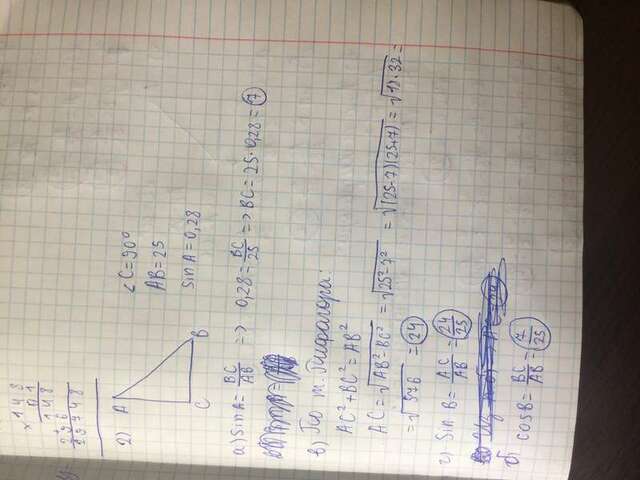 148
× 1
148
296
2)
A
C
B
∠C=90°
AB=25
sin A=0,28
а) sin A= BC/AB => 0,28= BC/25 => BC=25·0,28=7
в) По т. Пифагора:
AC²+BC²=AB²
AC=√AB²-BC² =√25²-7² =√(25-7)(25+7)=√18·32=
=√576 =24
г) sin B= AC/AB = 24/25
б)
cos B= BC/AB = 7/25